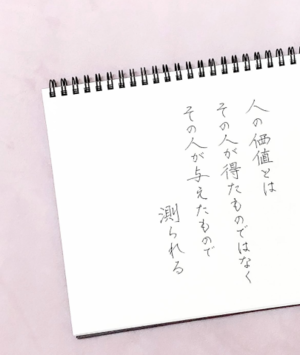 人の価値とは
その人が得たものではなく
その人が与えたもので
測られる